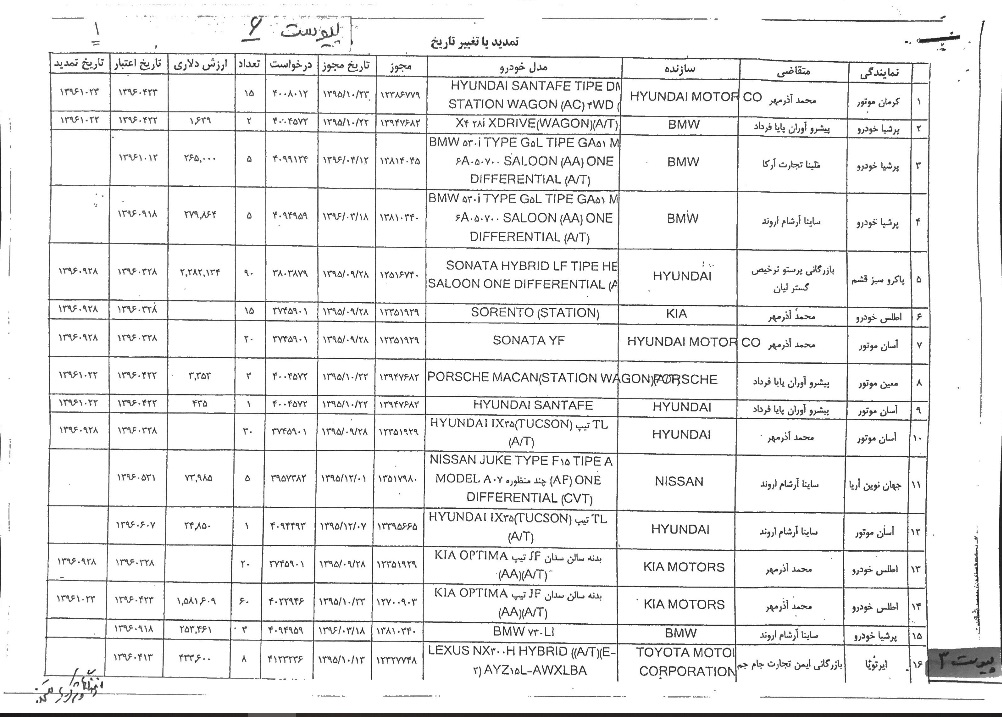 پیوست ۶
۱
تمدید یا تغییر تاریخ
نمایندگی متقاضی سازنده مدل خودرو مجوز تاریخ مجوز درخواست تعداد ارزش دلاری تاریخ اعتبار تاریخ تمدید
۱ کرمان موتور محمد آذرمهر HYUNDAI MOTOR CO HYUNDAI SANTAFE TIPE DM STATION WAGON (AC) ۴WD ( ۱۲۳۸۶۷۷۹ ۱۳۹۵/۱۰/۲۳ ۴۰۰۸۰۱۲ ۱۵ ۱۳۹۶۰۴۲۳ ۱۳۹۶۱۰۲۳
۲ پرشیا خودرو پیشرو آوران پایا فرداد BMW X۴ ۲۸i XDRIVE(WAGON)(A/T) ۱۲۹۴۷۶۸۲ ۱۳۹۵/۱۰/۲۲ ۴۰۰۴۵۷۲ ۲ ۱,۶۳۹ ۱۳۹۶۰۴۲۲ ۱۳۹۶۱۰۲۲
۳ پرشیا خودرو ملینا تجارت آرکا BMW BMW ۵۳۰i TYPE G۵L TIPE GA۵۱ M ۶A۰۵۰۷۰۰ SALOON (AA) ONE DIFFERENTIAL (A/T) ۱۳۸۱۴۰۴۵ ۱۳۹۶/۰۴/۱۲ ۴۰۹۹۱۲۴ ۵ ۲۶۵,۰۰۰ ۱۳۹۶۱۰۱۲
۴ پرشیا خودرو ساینا آرشام اروند BMW BMW ۵۳۰i TYPE G۵L TIPE GA۵۱ M ۶A۰۵۰۷۰۰ SALOON (AA) ONE DIFFERENTIAL (A/T) ۱۳۸۱۰۳۴۰ ۱۳۹۶/۰۳/۱۸ ۴۰۹۴۹۵۹ ۵ ۲۷۹,۸۶۴ ۱۳۹۶۰۹۱۸
۵ پاکرو سبز قشم بازرگانی پرستو ترخیص گستر لیان HYUNDAI SONATA HYBRID LF TIPE HE SALOON ONE DIFFERENTIAL (A ۱۲۵۱۶۷۴۰ ۱۳۹۵/۰۹/۲۸ ۳۸۰۳۸۷۹ ۹۰ ۲,۲۸۲,۱۳۴ ۱۳۹۶۰۳۲۸ ۱۳۹۶۰۹۲۸
۶ اطلس خودرو محمد آذرمهر KIA SORENTO (STATION) ۱۲۳۵۱۹۲۹ ۱۳۹۵/۰۹/۲۸ ۳۷۴۵۹۰۱ ۱۵ ۱۳۹۶۰۳۲۸ ۱۳۹۶۰۹۲۸
۷ آسان موتور محمد آذرمهر HYUNDAI MOTOR CO SONATA YF ۱۲۳۵۱۹۲۹ ۱۳۹۵/۰۹/۲۸ ۳۷۴۵۹۰۱ ۲۰ ۱۳۹۶۰۳۲۸ ۱۳۹۶۰۹۲۸
۸ معین موتور پیشرو آوران پایا فرداد PORSCHE PORSCHE MACAN(STATION WAGON)(A/T) ۱۲۹۴۷۶۸۲ ۱۳۹۵/۱۰/۲۲ ۴۰۰۴۵۷۲ ۲ ۳,۳۵۳ ۱۳۹۶۰۴۲۲ ۱۳۹۶۱۰۲۲
۹ آسان موتور پیشرو آوران پایا فرداد HYUNDAI HYUNDAI SANTAFE ۱۲۹۴۷۶۸۲ ۱۳۹۵/۱۰/۲۲ ۴۰۰۴۵۷۲ ۱ ۴۳۵ ۱۳۹۶۰۴۲۲ ۱۳۹۶۱۰۲۲
۱۰ آسان موتور محمد آذرمهر HYUNDAI HYUNDAI IX۳۵(TUCSON) تیپ TL (A/T) ۱۲۳۵۱۹۲۹ ۱۳۹۵/۰۹/۲۸ ۳۷۴۵۹۰۱ ۳۰ ۱۳۹۶۰۳۲۸ ۱۳۹۶۰۹۲۸
۱۱ جهان نوین آریا ساینا آرشام اروند NISSAN NISSAN JUKE TYPE F۱۵ TIPE A MODEL A۰۷ چند منظوره (AF) ONE DIFFERENTIAL (CVT) ۱۳۵۱۷۹۸۰ ۱۳۹۵/۱۲/۰۱ ۳۹۵۷۳۸۲ ۵ ۷۳,۹۸۵ ۱۳۹۶۰۵۳۱
۱۲ آسان موتور ساینا آرشام اروند HYUNDAI HYUNDAI IX۳۵(TUCSON) تیپ TL (A/T) ۱۳۳۹۵۶۶۵ ۱۳۹۵/۱۲/۰۷ ۴۰۹۴۴۹۳ ۱ ۲۴,۸۵۰ ۱۳۹۶۰۶۰۷
۱۳ اطلس خودرو محمد آذرمهر KIA MOTORS KIA OPTIMA تیپ JF بدنه سالن سدان (AA)(A/T) ۱۲۳۵۱۹۲۹ ۱۳۹۵/۰۹/۲۸ ۳۷۴۵۹۰۱ ۲۰ ۱۳۹۶۰۳۲۸ ۱۳۹۶۰۹۲۸
۱۴ اطلس خودرو محمد آذرمهر KIA MOTORS KIA OPTIMA تیپ JF بدنه سالن سدان (AA)(A/T) ۱۲۷۰۰۹۰۳ ۱۳۹۵/۱۰/۲۳ ۴۰۲۳۹۴۶ ۶۰ ۱,۵۸۱,۶۰۹ ۱۳۹۶۰۴۲۳ ۱۳۹۶۱۰۲۳
۱۵ پرشیا خودرو ساینا آرشام اروند BMW BMW ۷۳۰LI ۱۳۸۱۰۳۴۰ ۱۳۹۶/۰۳/۱۸ ۴۰۹۴۹۵۹ ۳ ۲۵۳,۴۶۱ ۱۳۹۶۰۹۱۸
۱۶ ایرتویا بازرگانی ایمن تجارت جام جم TOYOTA MOTOR CORPORATION LEXUS NX۳۰۰H HYBRID ((A/T)(E-۳) AYZ۱۵L-AWXLBA ۱۲۳۲۷۷۴۸ ۱۳۹۵/۱۰/۱۳ ۴۱۲۳۲۳۶ ۸ ۴۳۳,۶۰۰ ۱۳۹۶۰۴۱۳
پیوست ۳